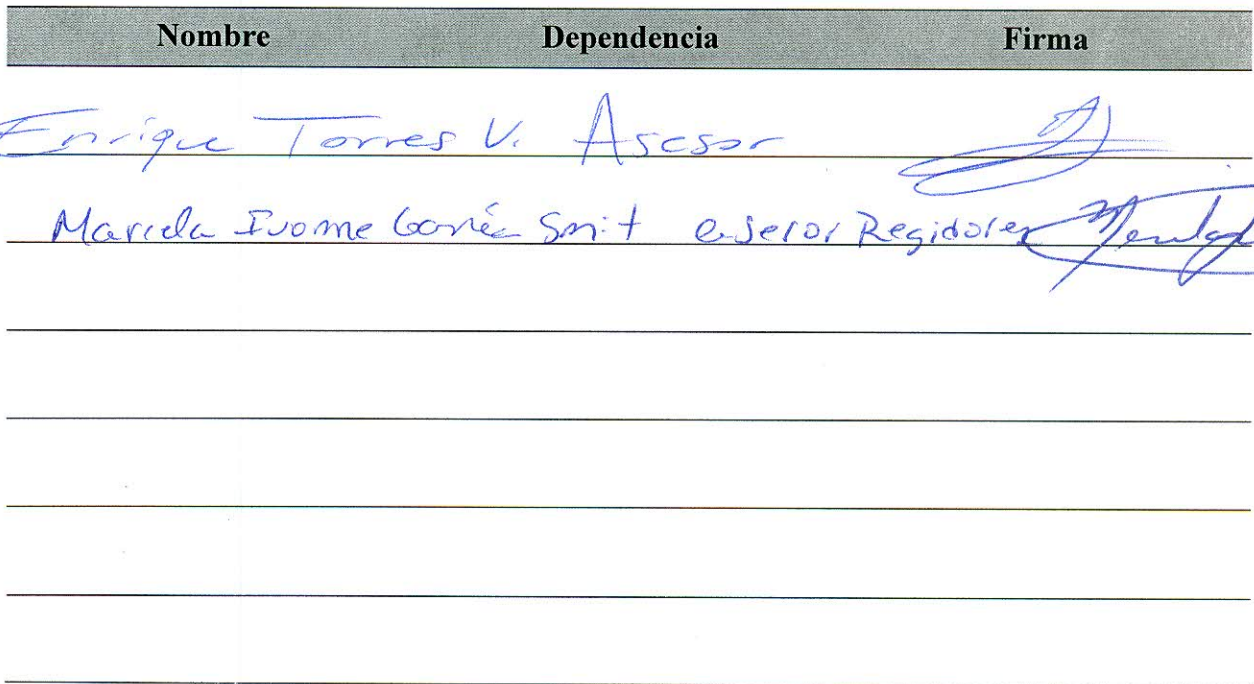 Nombre Dependencia Firma
Enrique Torres V. Asesor
Marcela Ivonne García Smit asesor Regidores